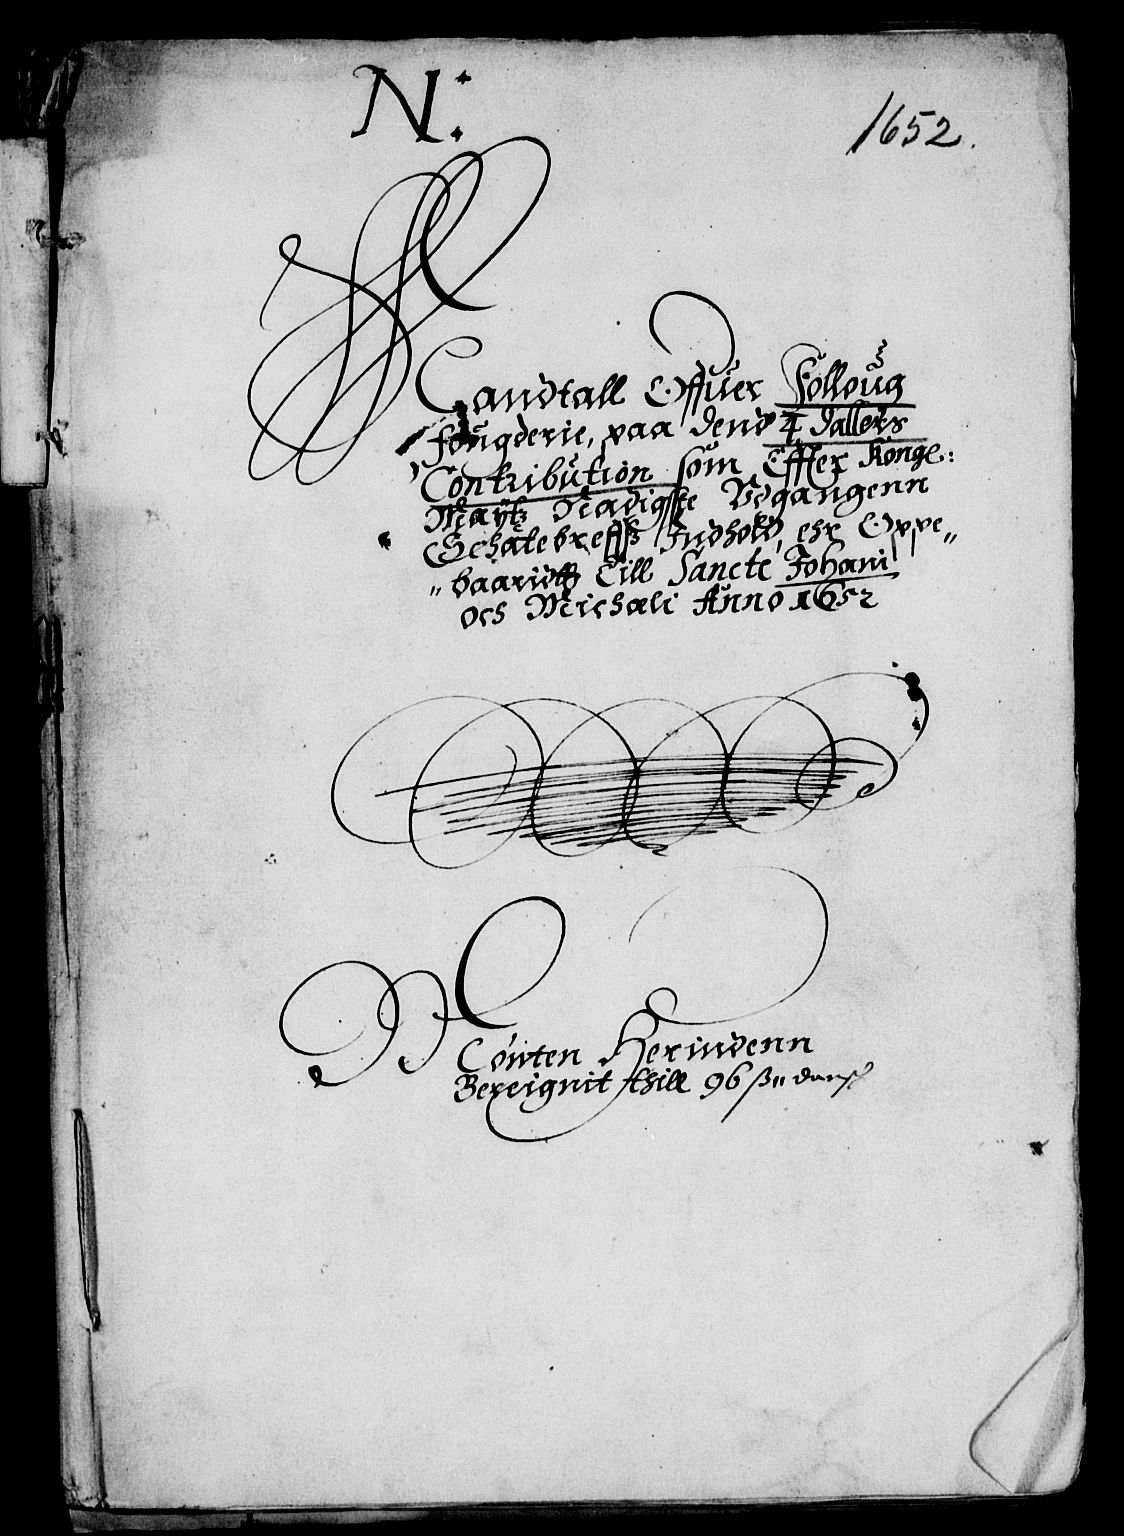 N:
1652.
Mandtall Offuer Folloug
fougderie, paa dend 4 dallers
Contribution som Effter Konge:
Maÿtz Naadigste Vdgangenn
Schatebreffs Indhold, ehr Oppe„
„baaridtt Till Sancte Johani
och Michaeli Anno 1652
Conten Herindenn
Bereignit thill 96 ß„ dansk